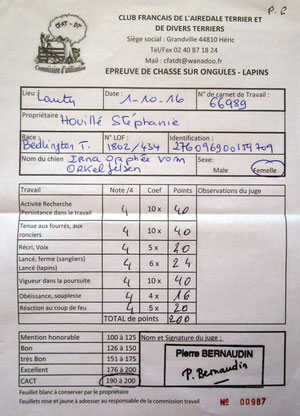 P. C
CFAT-DT
Commission d'utilisation
CLUB FRANCAIS DE L'AIREDALE TERRIER ET
DE DIVERS TERRIERS
Siège social : Grandville 44810 Héric
Tel/Fax 02 40 87 18 24
Mail : cfatdt@wanadoo.fr
EPREUVE DE CHASSE SUR ONGULES - LAPINS
Lieu : Date : 1-10-16 N° de carnet de Travail : 66989
Propriétaire : Houillé Stéphanie
Race : Bedlington T. N° LOF : 1802/434 Identification : 276096900159709
Nom du chien Irna Orphée vom Orkelfelsen Sexe: Male Femelle
Travail Note /4 Coef Points Observations du juge
Activité Recherche
Persistance dans le travail 4 10 x 40
Tenue aux fourrés, aux
ronciers 4 10 x 40
Récri, Voix 4 5 x 20
Lancé, ferme (sangliers)
Lancé (lapins) 4 6 x 24
Vigueur dans la poursuite 4 10 x 40
Obéissance, souplesse 4 4 x 16
Réaction au coup de feu 4 5 x 20
TOTAL de points 200
Mention honorable 100 à 125 Nom et Signature du juge :
Bon 126 à 150
très Bon 151 à 175
Excellent 176 à 200
CACT 190 à 200
Pierre BERNAUDIN
P. Bernaudin
Feuillet blanc à conserver par le propriétaire
Feuillets rose et jaune à adresser au responsable de la commission travail
N° 00987